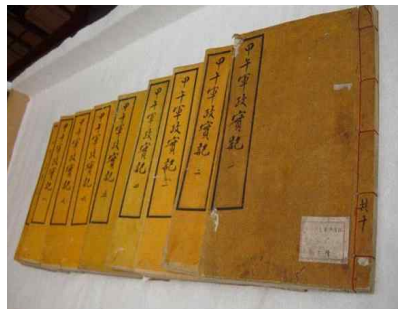 甲午軍政實記 一
共十
甲午軍政實記 二
甲午軍政實記
甲午軍政實記
甲午軍政實記 四
甲午軍政實記
甲午軍政實記
甲午軍政實記
甲午軍政實記